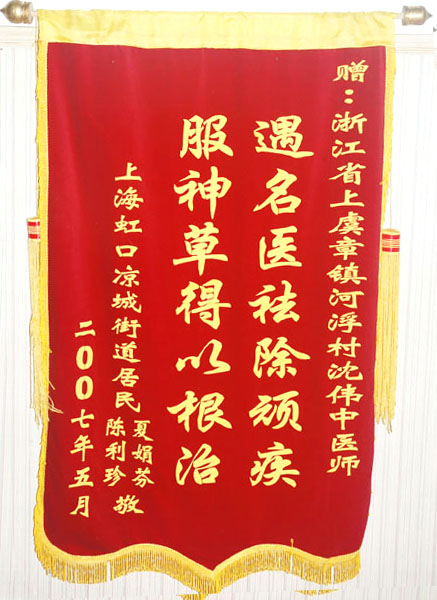 赠：浙江省上虞章镇河浮村沈伟中医师
遇名医祛除顽疾
服神草得以根治
上海虹口凉城街道居民
夏娟芬
陈利珍
敬
二00七年五月